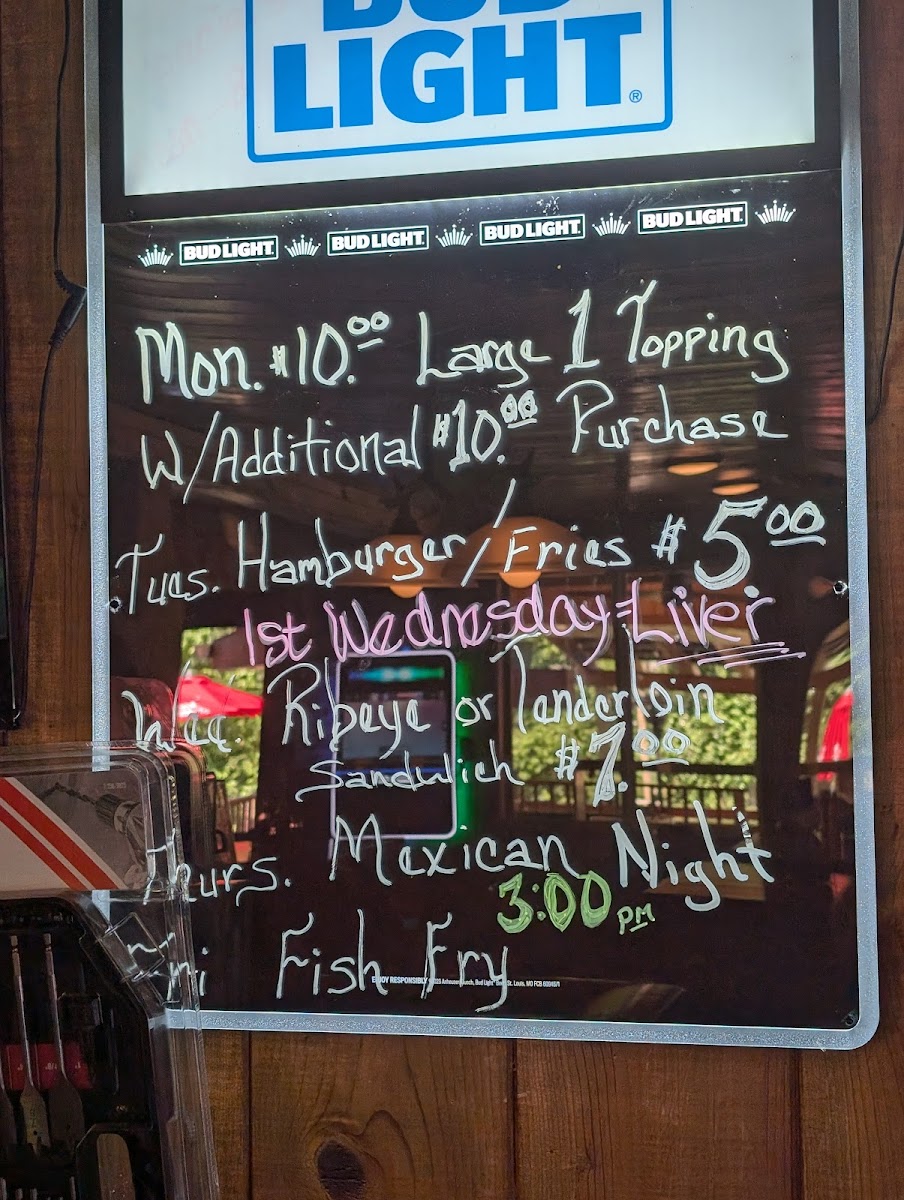 BUD
LIGHT®
BUD LIGHT BUD LIGHT BUD LIGHT BUD LIGHT
Mon. $10.00 Large 1 Topping
W/Additional $10.00 Purchase
Tues. Hamburger/Fries $5.00
1st Wednesday=Liver
Wed. Ribeye or Tenderloin
Sandwich $7.00
Thurs. Mexican Night
3:00 PM
Fri Fish Fry
ENJOY RESPONSIBLY
St. Louis, MO